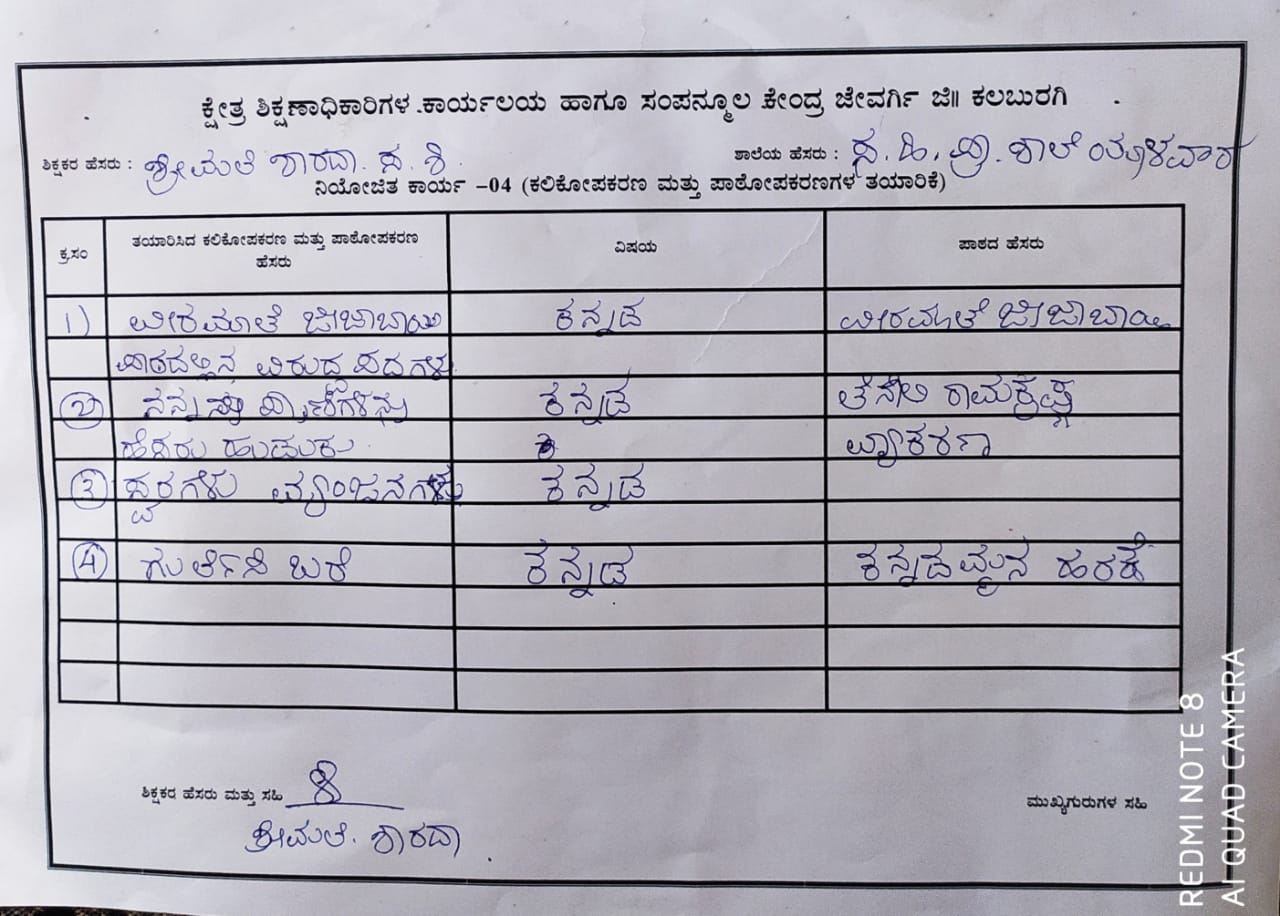 ಕ್ಷೇತ್ರ ಶಿಕ್ಷಣಾಧಿಕಾರಿಗಳ ಕಾರ್ಯಲಯ ಹಾಗೂ ಸಂಪನ್ಮೂಲ ಕೇಂದ್ರ ಜೇವರ್ಗಿ ಜಿ॥ ಕಲಬುರಗಿ
ಶಿಕ್ಷಕರ ಹೆಸರು : ಶ್ರೀಮತಿ ಶಾರದಾ. ಸ. ಶಿ. ಶಾಲೆಯ ಹೆಸರು : ಸ. ಹಿ. ಪ್ರಾ. ಶಾಲೆ ಯಾಳವಾರ
ನಿಯೋಜಿತ ಕಾರ್ಯ -04 (ಕಲಿಕೋಪಕರಣ ಮತ್ತು ಪಾಠೋಪಕರಣಗಳ ತಯಾರಿಕೆ)
ಕ್ರ.ಸಂ ತಯಾರಿಸಿದ ಕಲಿಕೋಪಕರಣ ಮತ್ತು ಪಾಠೋಪಕರಣ ಹೆಸರು ವಿಷಯ ಪಾಠದ ಹೆಸರು
1) ವೀರಮಾತೆ ಜೀಜಾಬಾಯಿ ಕನ್ನಡ ವೀರಮಾತೆ ಜೀಜಾಬಾಯಿ
ಪಾಠದಲ್ಲಿನ ವಿರುದ್ಧ ಪದಗಳು
2) ನನ್ನ ಕನ್ನಡ ತೆನಾಲಿ ರಾಮಕೃಷ್ಣ
ಹೆಸರು ಹುಡುಕು ವ್ಯಾಕರಣ
3) ಸ್ವರಗಳು ವ್ಯಂಜನಗಳು ಕನ್ನಡ
4) ಗುರ್ತಿಸಿ ಬರೆ ಕನ್ನಡ ಕನ್ನಡಮ್ಮನ ಹರಕೆ
ಶಿಕ್ಷಕರ ಹೆಸರು ಮತ್ತು ಸಹಿ ಮುಖ್ಯಗುರುಗಳ ಸಹಿ
ಶ್ರೀಮತಿ. ಶಾರದಾ
REDMI NOTE 8
AI QUAD CAMERA